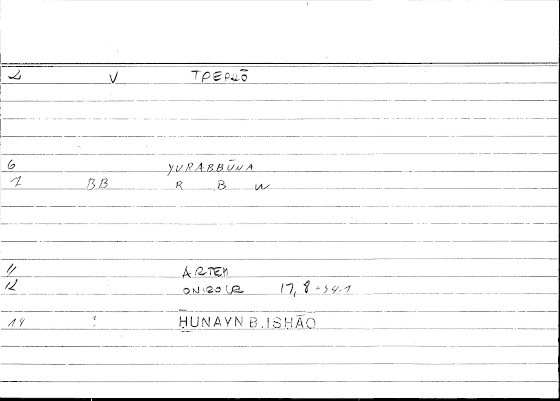 2 V ΤΡΕΡΗŌ
6 YURABBŪNA
7 BB R B W
11 ARTEM
12 ONIROCR 17, 8
14 : ḤUNAYN B. ISHĀQ